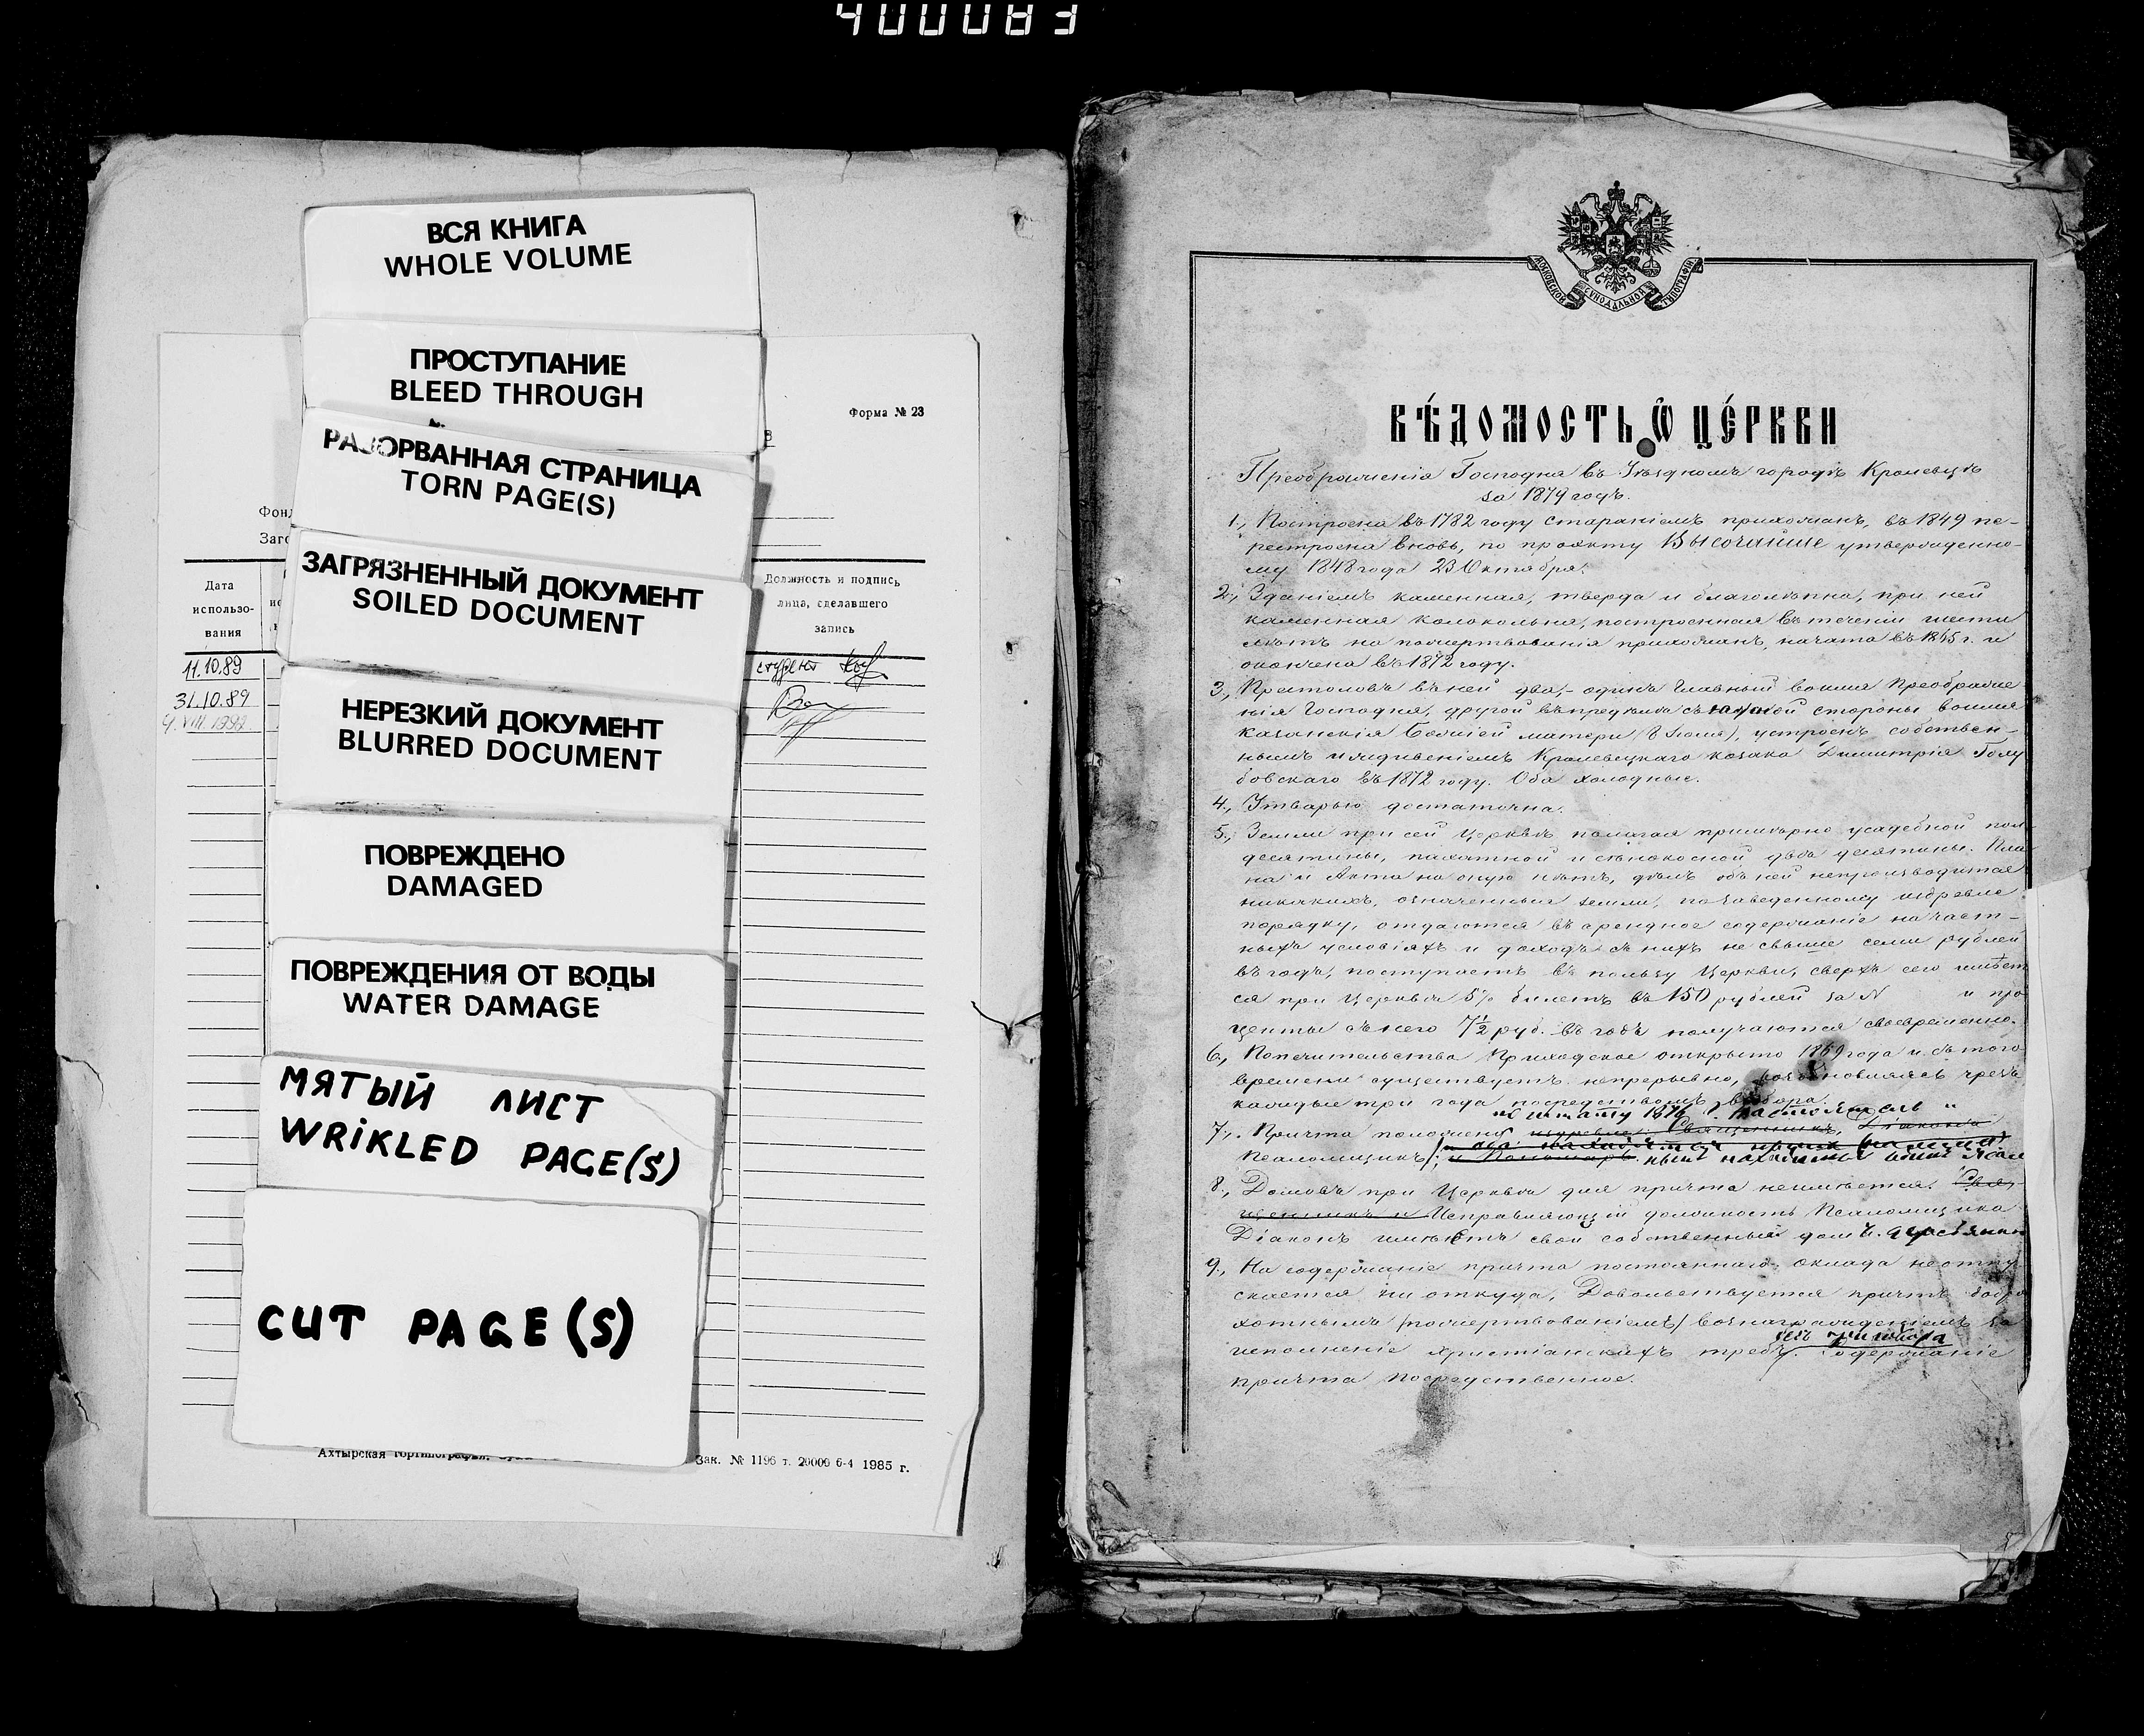 400083
ВСЯ КНИГА
WHOLE VOLUME
ПРОСТУПАНИЕ
BLEED THROUGH
РАЗОРВАННАЯ СТРАНИЦА
TORN PAGE(S)
ЗАГРЯЗНЕННЫЙ ДОКУМЕНТ
SOILED DOCUMENT
НЕРЕЗКИЙ ДОКУМЕНТ
BLURRED DOCUMENT
ПОВРЕЖДЕНО
DAMAGED
ПОВРЕЖДЕНИЯ ОТ ВОДЫ
WATER DAMAGE
МЯТЫЙ ЛИСТ
WRIKLED PAGE(S)
CUT PAGE(S)
Форма № 23
Фон
Заг
Дата
использо-
вания
Должность и подпись
лица, сделавшего
запись
11.10.89 студент
31.10.89
Ахтырская
Зак. № 1196 т. 20000 6-4 1985 г.
МОСКОВСКОЙ СѴНОДАЛЬНОЙ ТѴПОГРАФІИ
ВѢ́ДОМОСТЬ Ѽ ЦЕ́РКВИ
Преображенія Господня въ Уѣздномъ городѣ Кролевцѣ
за 1879 годъ.
1., Построена въ 1782 году стараніемъ прихожанъ, въ 1849 пе-
рестроена вновь, по проэкту Высочайше утвержденно-
му 1848 года 23 Октября.
2., Зданіемъ каменная, тверда и благолѣпна, при ней
каменная колокольня, построенная въ теченіи шести
лѣтъ на пожертвованія прихожанъ, начата въ 1865 г. и
окончена въ 1872 году.
3., Престоловъ въ ней два,- одинъ главный во имя Преображе-
нія Господня, другой въ предѣлѣ съ южной стороны во имя
Казанскія Божіей матери (8 Іюля), устроенъ собствен-
нымъ иждивеніемъ Кролевецкаго козака Димитрія Голу
бовскаго въ 1872 году. Оба холодные.
4., Утварью достаточна.
5., Земли при сей Церквѣ полагая примѣрно усадебной пол-
десятины, пахатной и сѣнокосной двѣ десятины. Пла-
на и Акта на оную нѣтъ, дѣлъ объ ней непроизводится
никакихъ, означенныя земли, по заведенному издревле
порядку, отдаются въ арендное содержаніе на част-
ныхъ условіяхъ и доходъ съ нихъ не свыше семи рублей
въ годъ, поступаетъ въ пользу Церкви, сверхъ сего имѣет
ся при Церквѣ 5% билетъ въ 150 рублей за N и про
центы съ него 7½ руб. въ годъ получаются своевременно.
6., Попечительства Приходское открыто 1869 года и съ того
времени существуетъ непрерывно, возобновляясь чрезъ
каждые три года посредствомъ выбора.
по штату 1876 г. настоятель "
7., Причта положено издревле: Священникъ, Діаконъ
Псаломщикъ; и Пономарь
8., Домовъ при Церквѣ для причта неимѣется. Свя-
щенникъ и Исправляющій должность Псаломщика
Діаконъ имѣетъ свой собственный домъ
9., На содержаніе причта постояннаго оклада не отпу
скается ни откуда, Довольствуется причтъ добро
хотнымъ (пожертвованіемъ) вознагражденіемъ за
исполненіе христіанскихъ требъ. Содержаніе
причта посредственное.